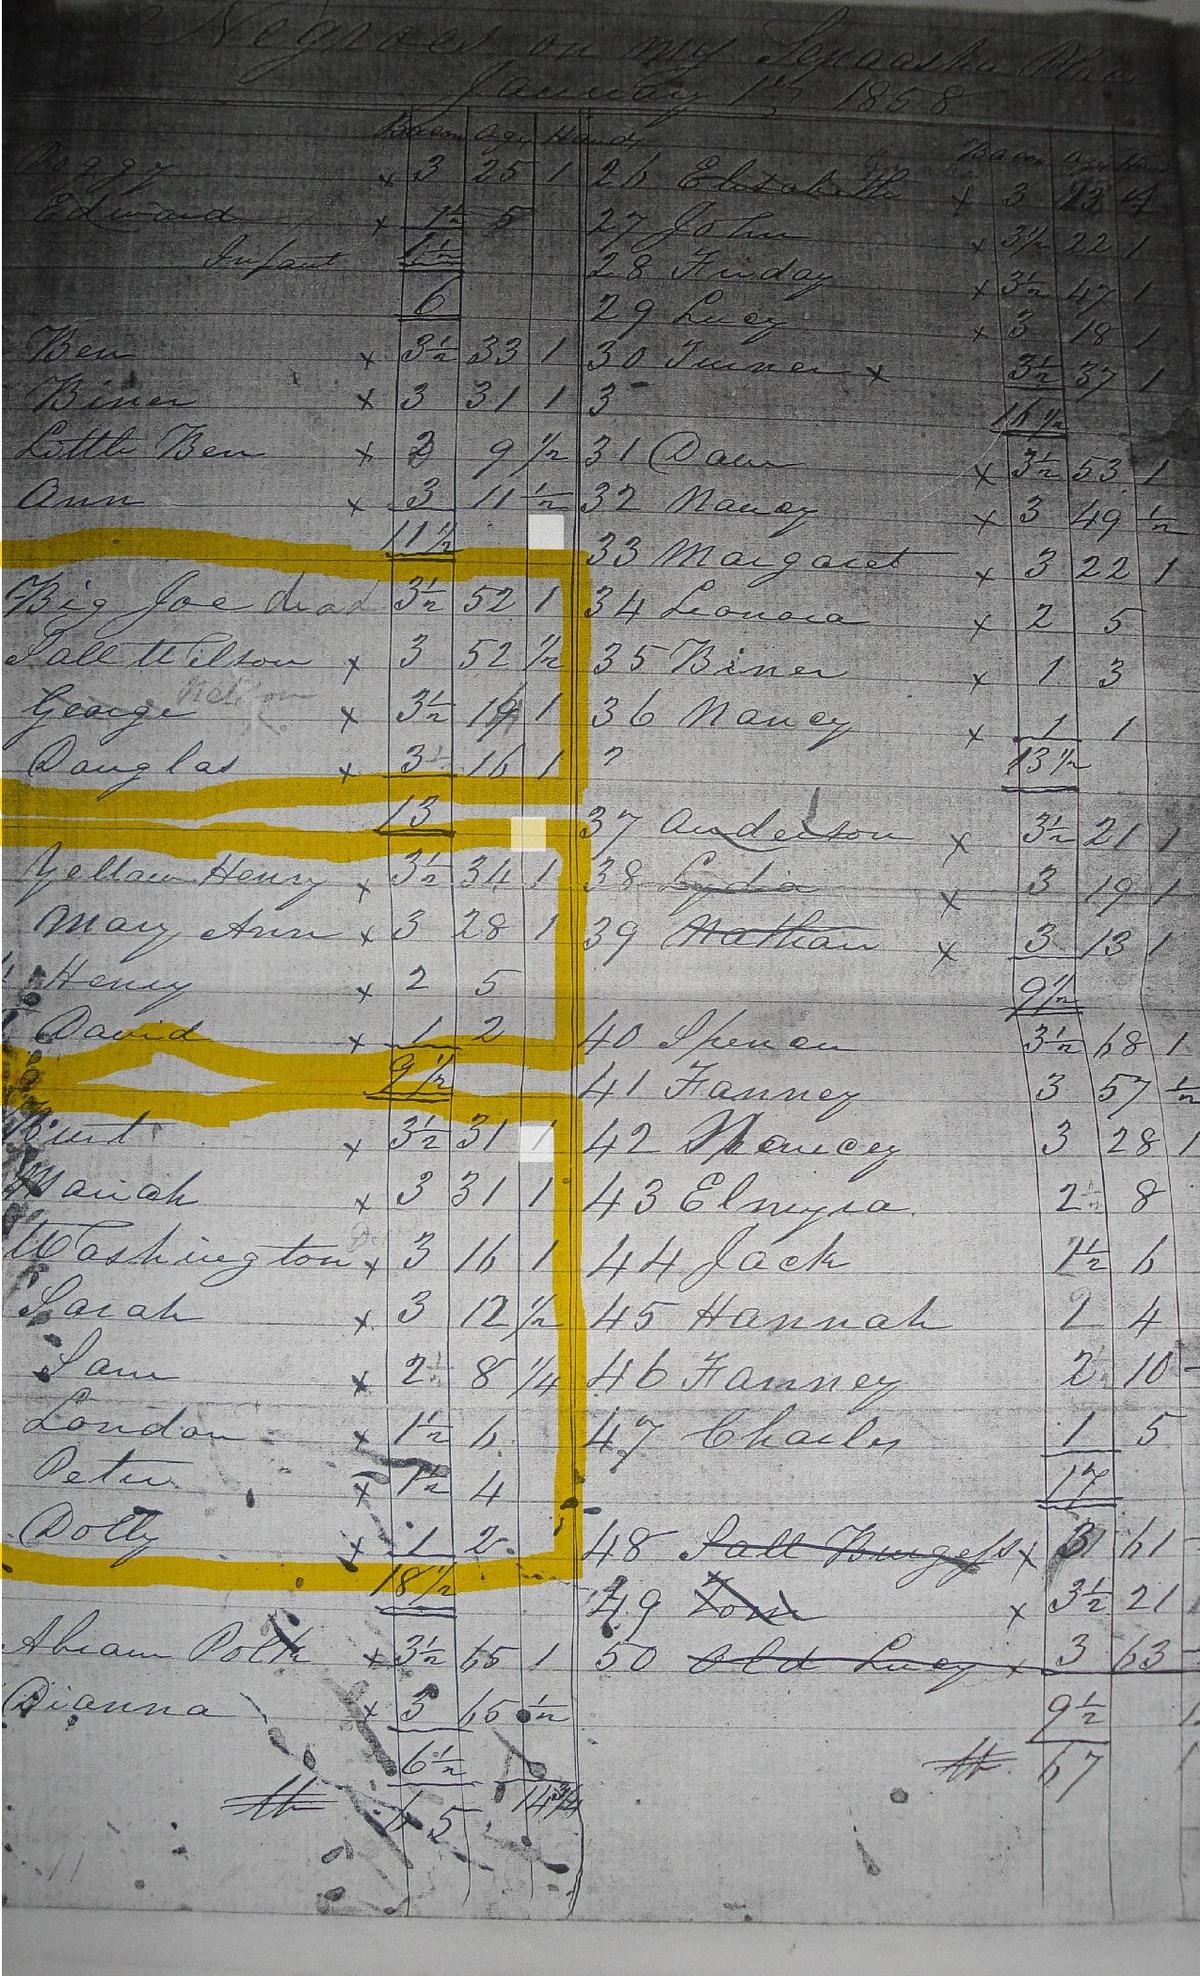 Negroes on my Place
January 1st 1858
Bacon Age Hands
Peggy x 3 25 1
Edward x 1½ 5
Infant 1½
6
Ben x 3½ 33 1
Biner x 3 31 1
Little Ben x 9 ½
Ann x 3 11 ½
11½
Big Joe dead 3½ 52 1
Sall Wilson x 3 52 ½
Nelson
George x 3½ 1
Douglas x 3 16 1
13
Yellow Henry x 3½ 34 1
Mary Ann x 3 28 1
Henry x 2 5
David x 1 2
9½
Burt x 3½ 31 1
Mariah x 3 31 1
Washington x 3 16 1
Sarah x 3 12 ½
Sam x 2 8 ¼
London x 1½ 6
Peter x 1½ 4
Dolly x 1 2
18½
Abram Polk x 3½ 65 1
Dianna x 3 65 ½
6½
65 14¾
Bacon Age Hands
26 Elizabeth x 3
27 John x 3½ 22 1
28 Friday x 3½ 47 1
29 Lucy x 3 18 1
30 Turner x 3½ 37 1
3
16½
31 Dave x 3½ 53 1
32 Nancy x 3 49 ½
33 Margaret x 3 22 1
34 Leonora x 2 5
35 Biner x 1 3
36 Nancy x 1 1
?
13½
37 Anderson x 3½ 21 1
38 Lydia x 3 19 1
39 Nathan x 3 13 1
9½
40 Spencer 3½ 68 1
41 Fanney 3 57 ½
42 3 28 1
43 Elmyra 2 8
44 Jack 1½ 6
45 Hannah 4
46 Fanney 2 10
47 Charles 1 5
17
48 Sall Burgess x 3 61
49 Tom x 3½ 21 1
50 Old Lucy x 3 63
9½
67